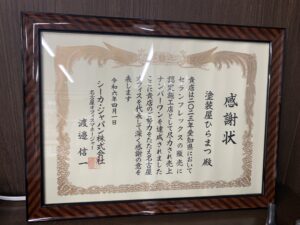 感謝状
塗装屋ひらまつ 殿
貴店は二〇二三年愛知県において
セランフレックスの販売に
認定施工店として尽力され売上
ナンバーワンを達成されました
ここに貴店のご努力をたたえ名古屋
オフィスを代表して深く感謝の意を
表します
令和六年四月一日
シーカ・ジャパン株式会社
名古屋オフィスマネージャー
渡邉 信一